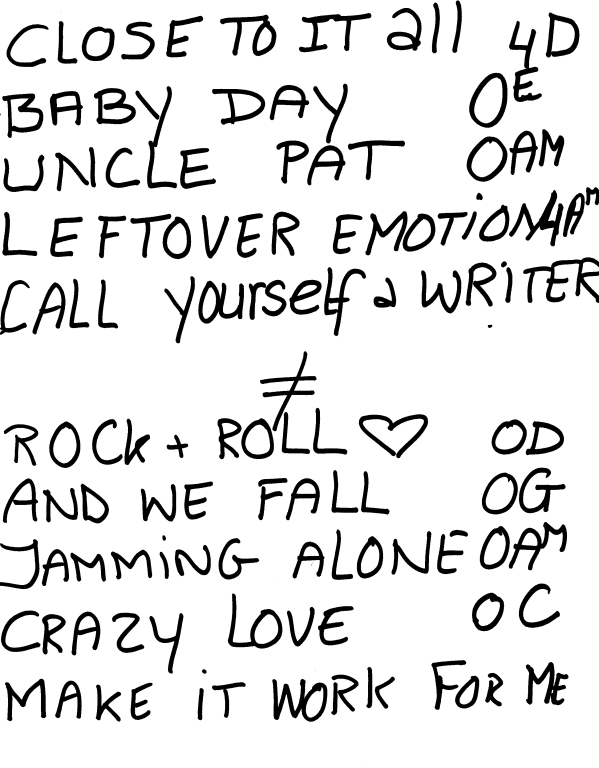 CLOSE TO IT all 4D
BABY DAY OE
UNCLE PAT OAM
LEFTOVER EMOTiON 4AM
CALL yourself a WRiTER
≠
ROCk + ROLL ♡ OD
AND WE FALL OG
JAMMiNG ALONE OAM
CRAZY LOVE OC
MAKE iT WORK FOR ME